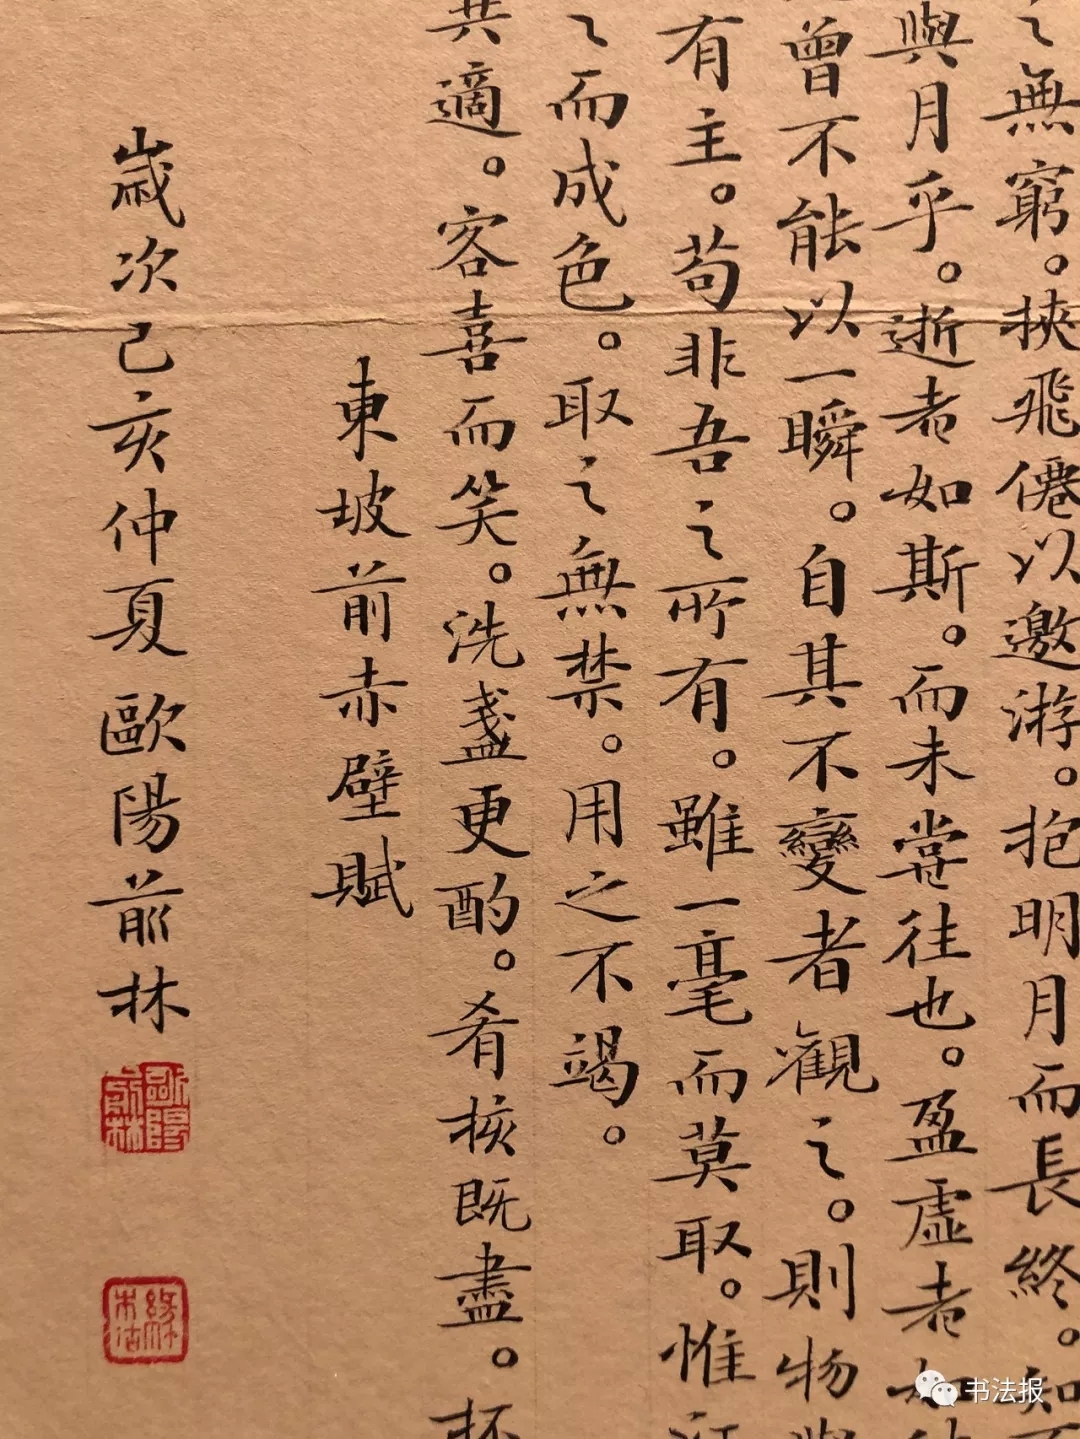 之無窮。挾飛僊以遨游。抱明月而長終。知
與月乎。逝者如斯。而未嘗往也。盈虛者如
曾不能以一瞬。自其不變者觀之。則物與
有主。苟非吾之所有。雖一毫而莫取。惟江
之而成色。取之無禁。用之不竭。
共適。客喜而笑。洗盞更酌。肴核既盡。杯
東坡前赤壁賦
歲次己亥仲夏 歐陽前林
书法报